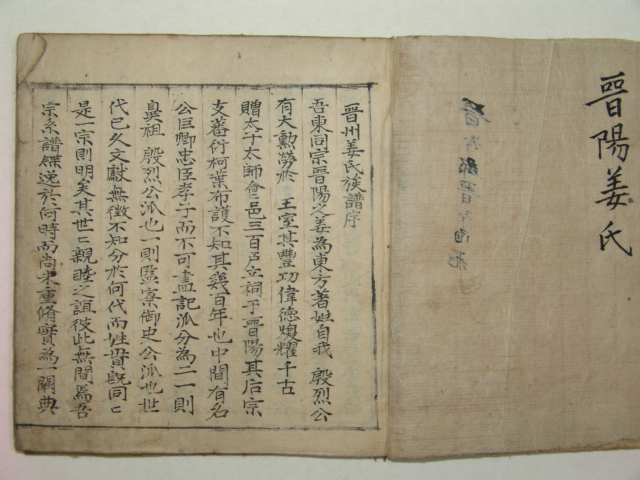 晋陽姜氏
晋州姜氏族譜序
吾東同宗晋陽之姜為東方著姓自我 殷烈公
有大勲勞於 王室其豊功偉德焜耀千古
贈太子太師會二邑三百戶立祠于晋陽其后宗
支蕃衍柯葉布護不知其幾百年也中間有名
公巨卿忠臣孝子而不可盡記派分為二一則
鼻祖 殷烈公派也一則監察御史公派也世
代已久文獻無徵不知分於何代而姓貫既同二
是一宗則明矣其世二親睦之誼彼此無間焉吾
宗系譜牒逸於何時而尚未重脩實為一闕典